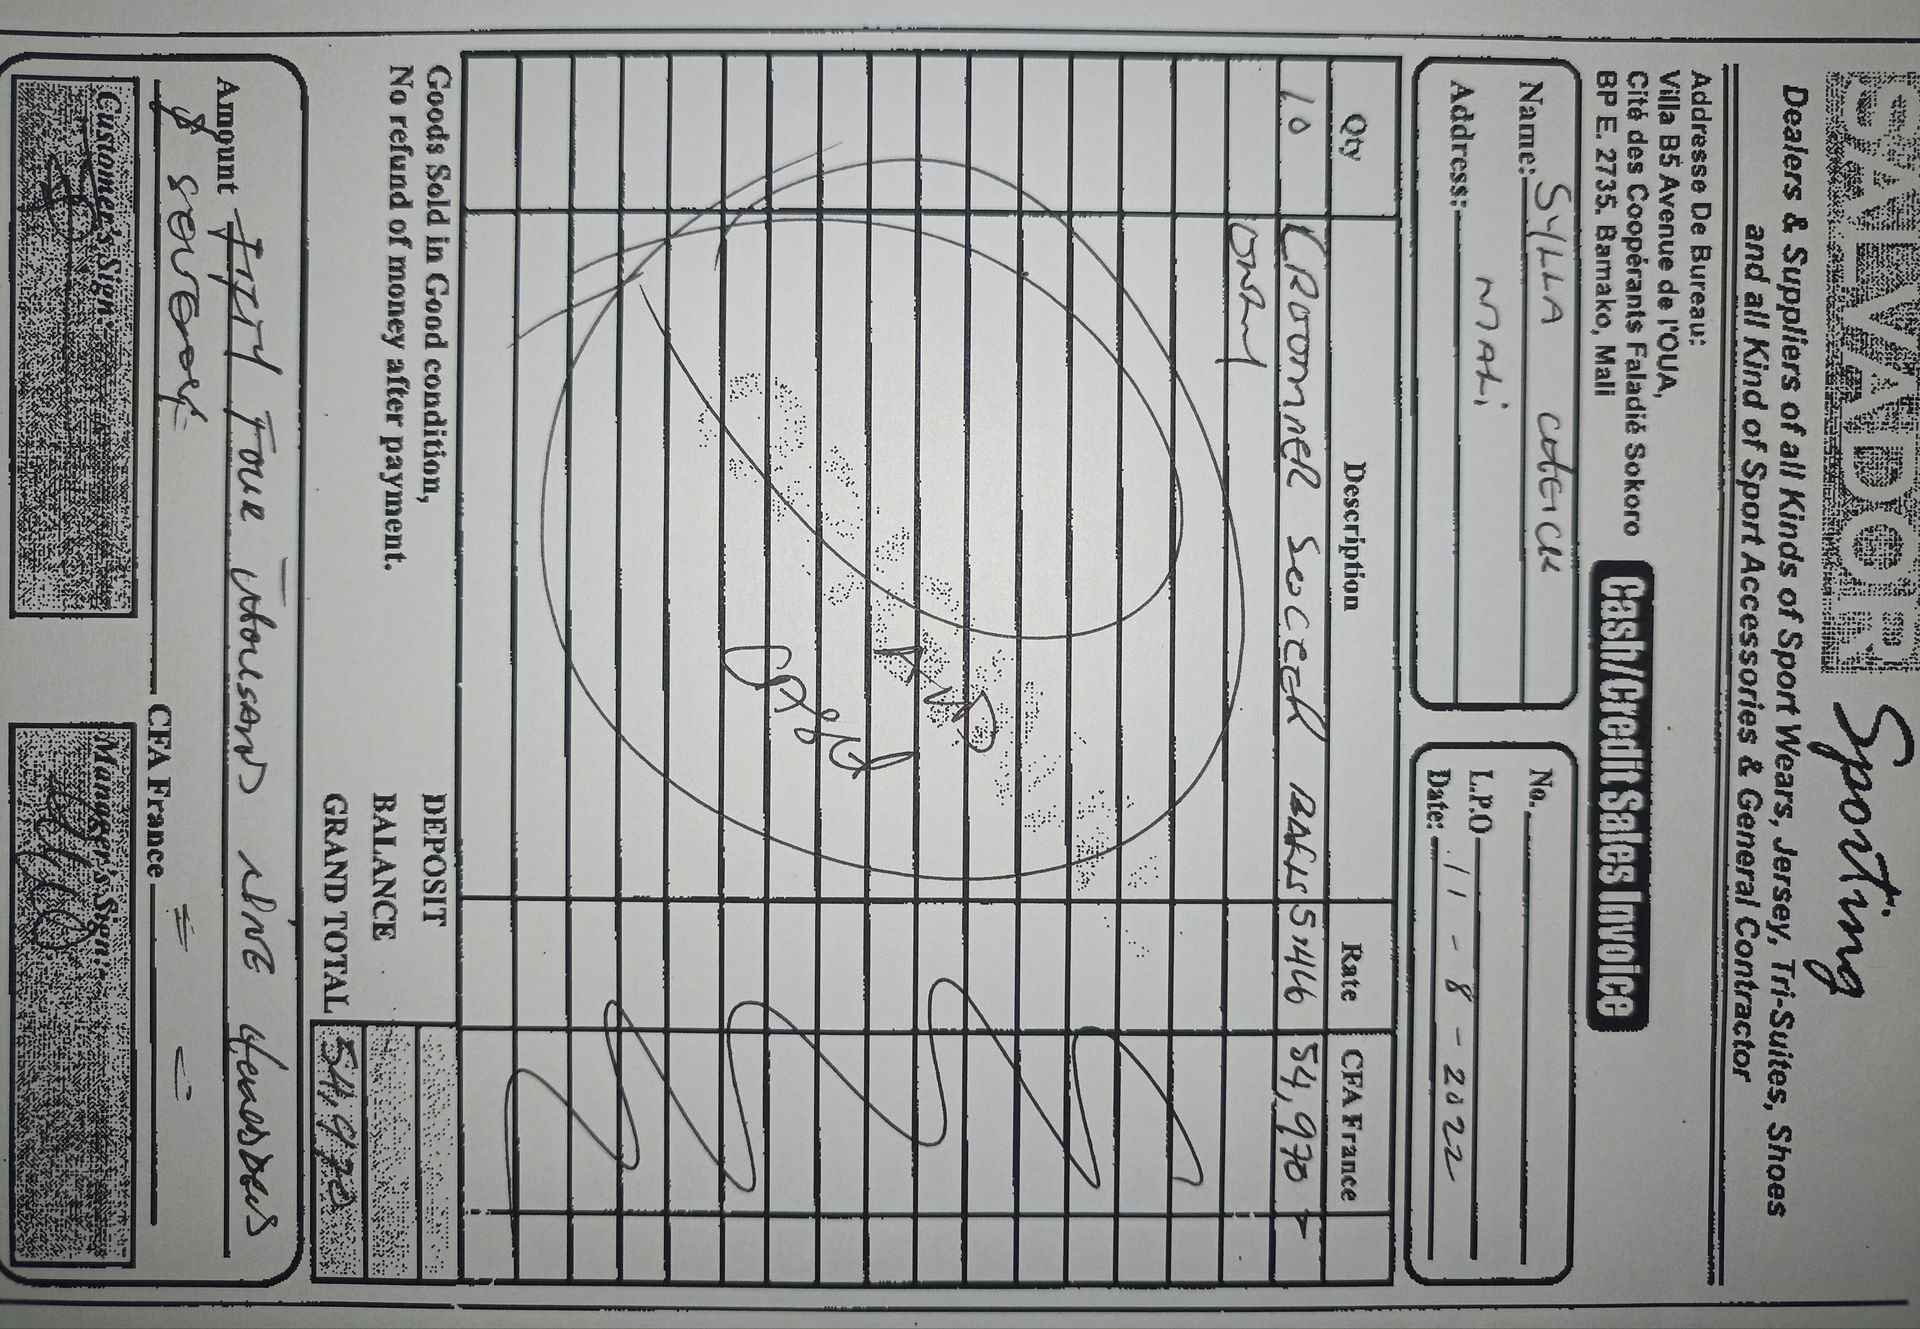 SALVADOR Sporting
Dealers & Suppliers of all Kinds of Sport Wears, Jersey, Tri-Suites, Shoes
and all Kind of Sport Accessories & General Contractor
Addresse De Bureau:
Villa B5 Avenue de l'OUA,
Cité des Coopérants Faladié Sokoro
BP E. 2735. Bamako, Mali
Cash/Credit Sales Invoice
Name: SYLLA CHEICK
Address: MALI
No.
L.P.O
Date: 11 - 8 - 2022
Qty Description Rate CFA France
10 SOCCER BALLS 54,970
ONLY
Goods Sold in Good condition,
No refund of money after payment.
DEPOSIT
BALANCE
GRAND TOTAL 54,970
Amount FIFTY FOUR THOUSAND NINE HUNDRED
& SEVENTY
CFA France
Customer's Sign:
Manager's Sign: